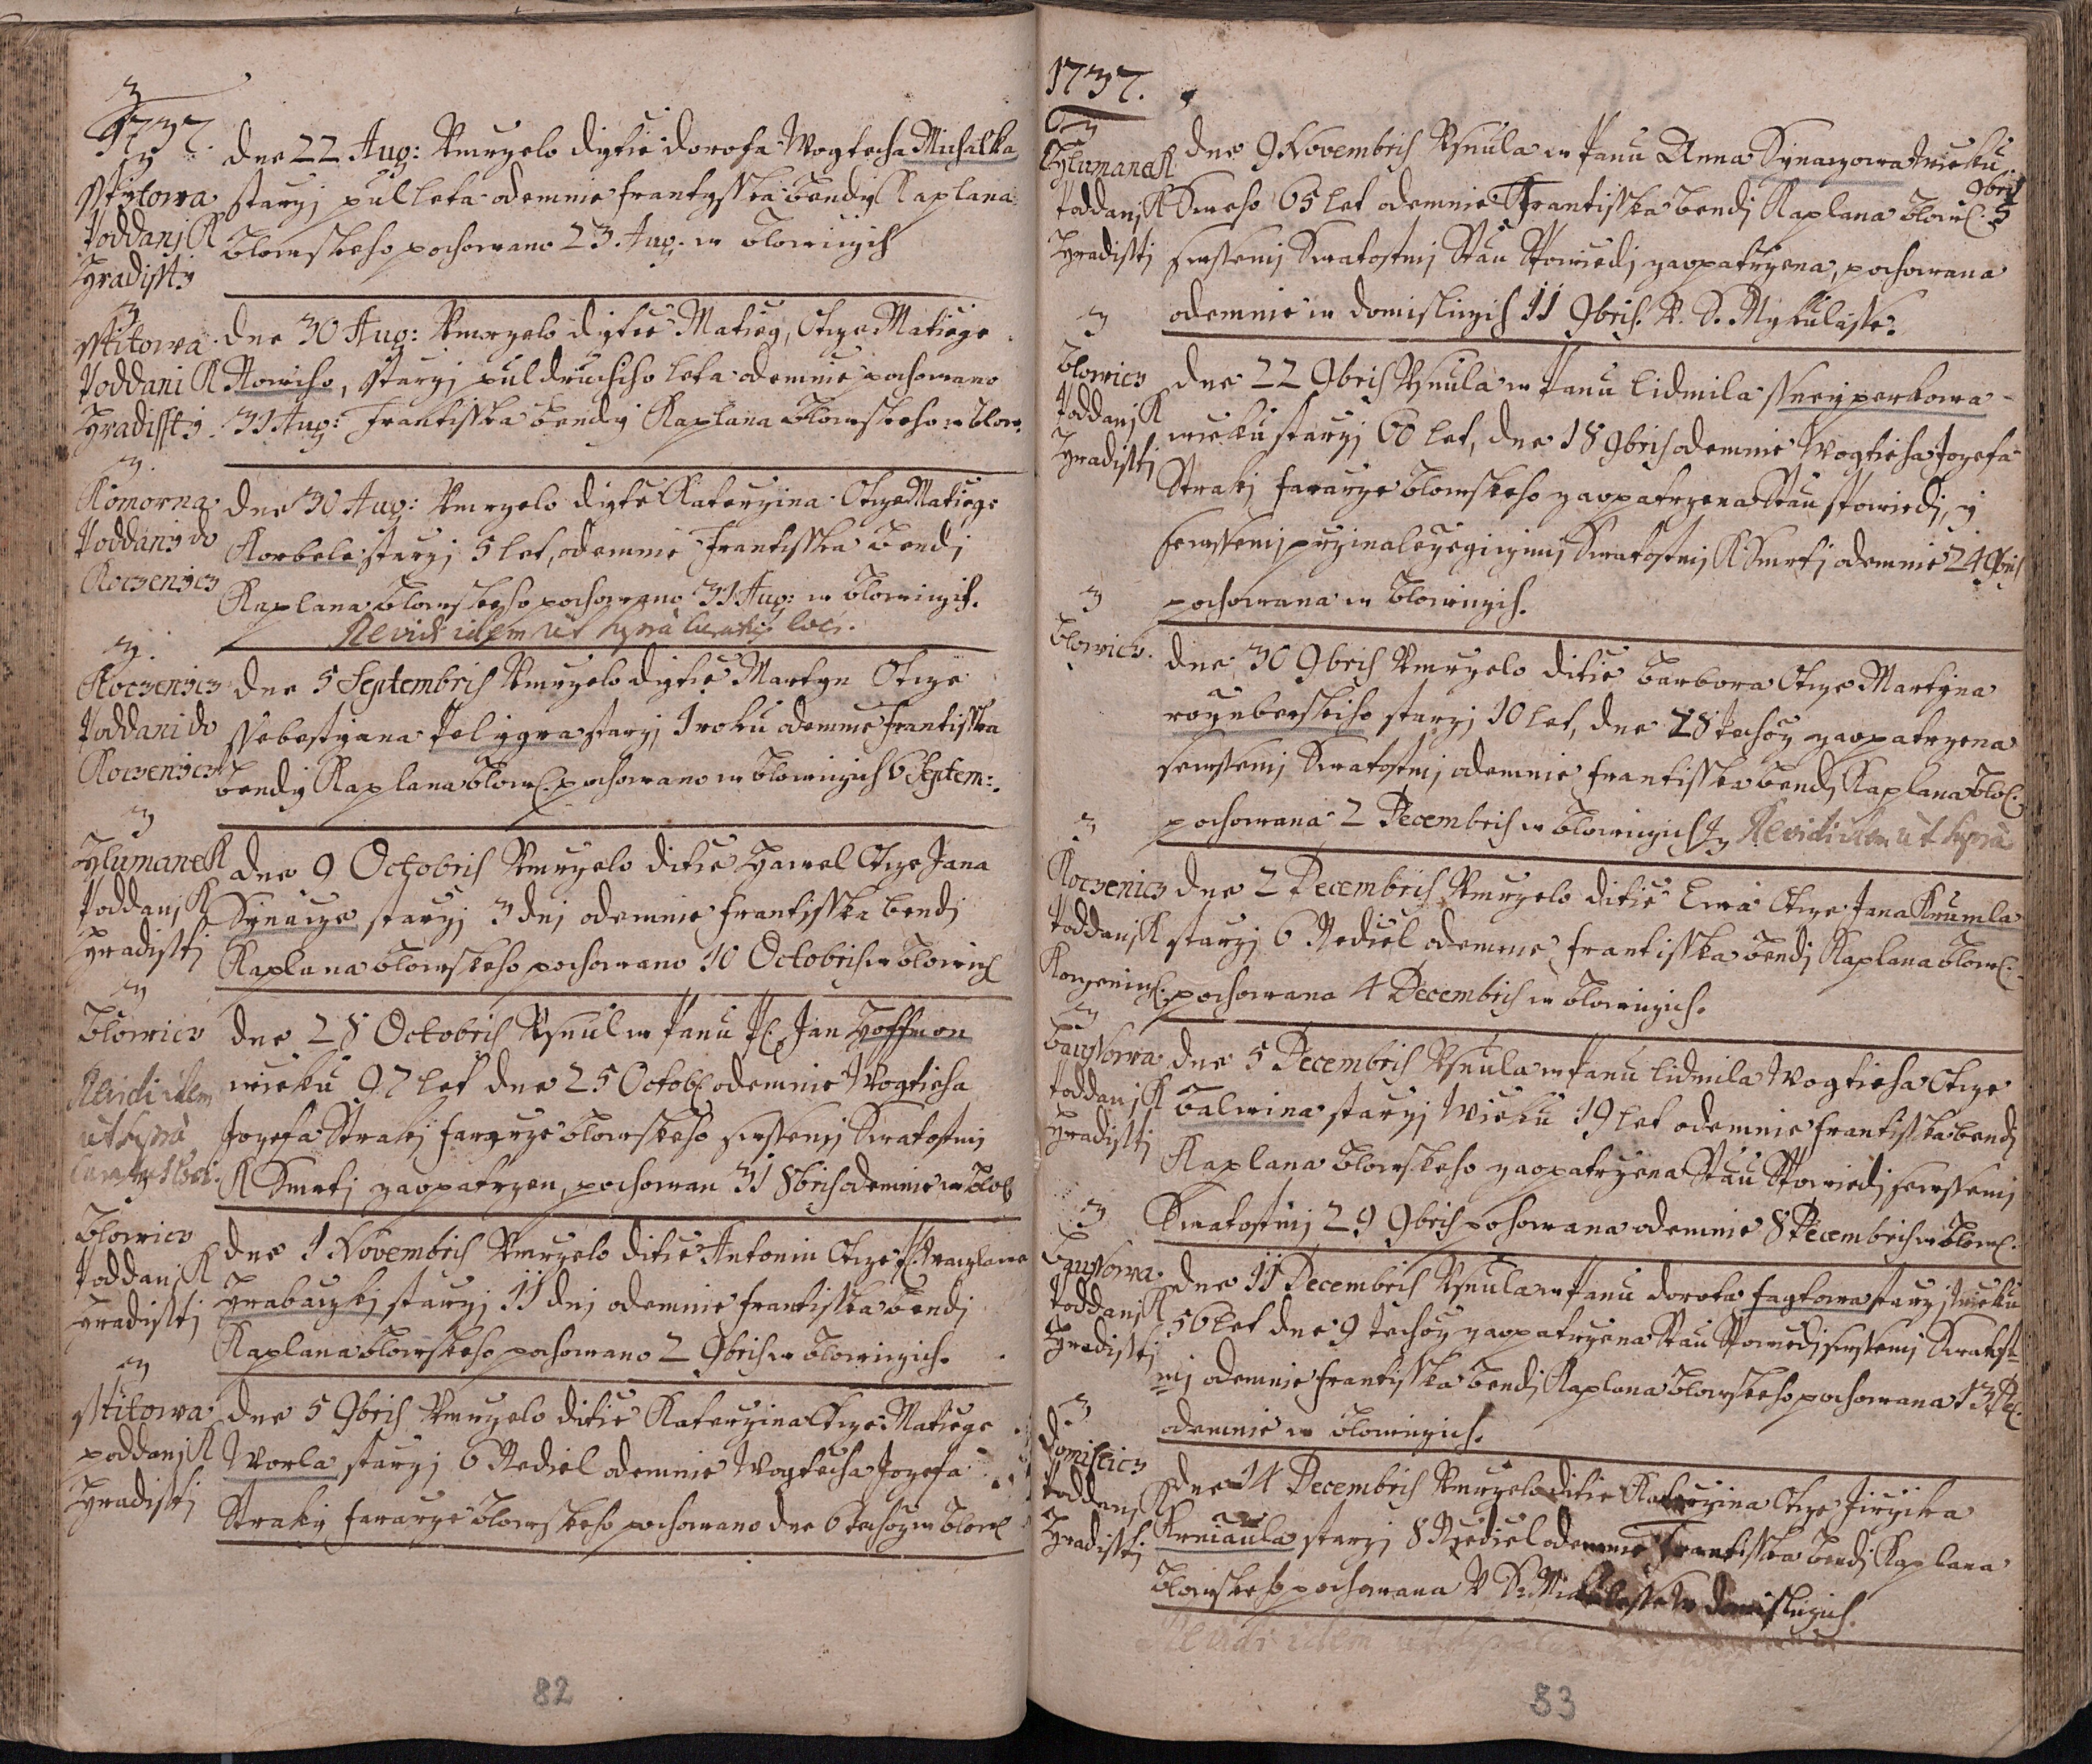 1737.
z
Sstytowa
Poddanj K
Hradissti
dne 22 Aug: Umrzelo dijtie dorota Wogtecha Michalka
staryj pul leta odemne Frantysska bendy Kaplana
blowskeho pochowano 23. Aug. w blowiczych
z
Sstitowa
Poddani K
Hradisstj
dne 30 Aug: Umrzelo dijtie Matieg, Otcze Matiege
Noweho, staryj pul druheho leta odemnie pochowano
31 Aug: Frantisska bendy Kaplana blowskeho w blow.
z
Komorna
Poddany do
Koczenicz
dne 30 Aug: Umrzelo dijte Katerzina Otcze Matiege
Korbele staryj 5 let, odemnie Frantisska bendj
Kaplana blowskeho pochowano 31 Aug: w blowiczych.
Revidi idem ut supra loci.
z
Koczenicz
Poddani do
Koczenicz
dne 5 Septembris Umrzelo dijtie Martyn Otcze
Ssebestyana Pelygra staryj 1 roku odemne Frantisska
bendy Kaplana blow. pochowano w blowiczych 6 Septem:
z
Hlumanek
Poddanj K
Hradisstj
dne 9 Octobris Umrzelo ditie Hawel Otcze Jana
Synacze staryj 3 dnj odemnie Frantisska bendj
Kaplana blowskeho pochowano 10 Octobris w blowicz
z
blowicz
Revidi idem
ut supra
loci.
dne 28 Octobris Usnul w Panu P. Jan Hoffmon
wieku 97 let dne 25 Octob. odemnie Wogtiecha
Jozefa Straky fararze blowskeho swssemj Swatostmj
K Smrtj zaopatrzen, pochowan 31 8bris odemnie w blow
blowicz
Poddanj K
Hradisstj
dne 1 Novembris Umrzelo ditie Antonin Otcze Waczlawa
Hrabaczky staryj 11 dnj odemnie Frantisska bendj
Kaplana blowskeho pochowano 2 9bris w blowiczych.
z
Sstitowa
poddanj K
Hradisstj
dne 5 9bris Umrzelo ditie Katerzina Otcze Matiege
Worla staryj 6 Nediel odemnie Wogtecha Jozefa
Straky fararze blowskeho pochowano dne 6 tehoz w blow
82
1737.
z
Hlumanek
Poddanj K
Hradisstj
dne 9 Novembris Usnula w Panu Anna Synaczowa Wieku
Sweho 65 let odemnie Frantisska bendj Kaplana blow. 5 9bris
swssemj Swatostmj Skrz Spowiedj zaopatrzena, pochowana
odemnie w domisliczych 11 9bris. U. S. Mykulasse.
z
blowicz
Poddanj K
Hradisstj
dne 22 9bris Usnula w Panu Lidmila
wieku staryj 60 let, dne 18 9bris odemnie Wogtiecha Jozefa
Straky fararze blowskeho zaopatrzena Skrz Spowiedj, y
sewssemj przinalezegiczymj Swatostmj K Smrtj odemnie 24 9bris
pochowana w blowiczych.
z
blowicz.
dne 30 9bris Umrzelo ditie barbora Otcze Martyna
roznberskeho staryj 10 let, dne 28 tehoz zaopatrzena
sewssemj Swatostmj odemnie Frantisska bendj Kaplana blo.
pochowana 2 Decembris w blowiczych Revidi idem ut supra
z
Koczenicz
Poddanj K
Korzenicz.
dne 2 Decembris Umrzelo ditie Ewa Otcze Jana Krumla
staryj 6 Nediel odemne Frantisska bendj Kaplana blow.
pochowana 4 Decembris w blowiczych.
z
Poddanj K
Hradisstj
dne 5 Decembris Usnula w Panu Lidmila Wogtiecha Otcze
balwina staryj Wieku 19 let odemnie Frantisska bendj
Kaplana blowskeho zaopatrzena Skrz Spowiedj sewssemj
Swatostmj 29 9bris pohowana odemnie 8 Decembris w blow.
z
Poddanj K
Hradisstj
dne 11 Decembris Usnula w Panu dorota Fagtowa staryj Wieku
56 let dne 9 tehoz zaopatrzena Skrz Spowiedj swssemj Swatost-
mj odemnie Frantisska bendj Kaplana blowskeho pochowana 13 De.
odemnie w blowiczych.
z
domislicz
Poddanj K
Hradisstj
dne 14 Decembris Umrzelo ditie Katerzina Otcze Jirzika
staryj 8 Nediel odemnie Frantisska bendj Kaplana
blowskeho pochowana U S. Mikulasse w domisliczych.
Revidi idem ut supra
83